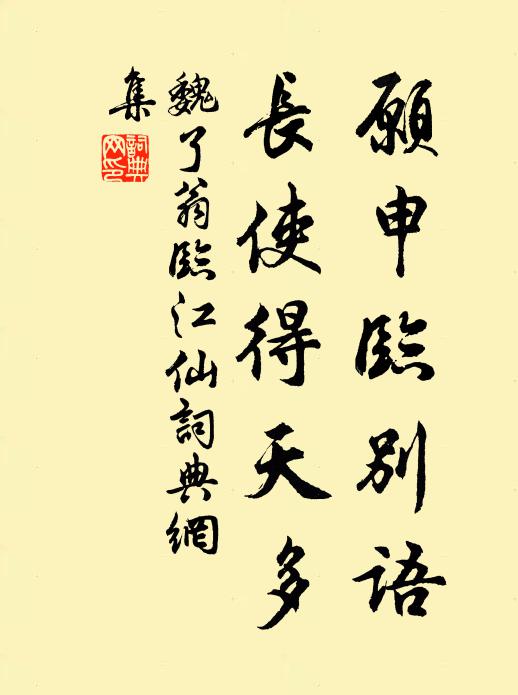 願申臨別語
長使得天多
魏了翁臨江仙詞典網
集
詞典
網印